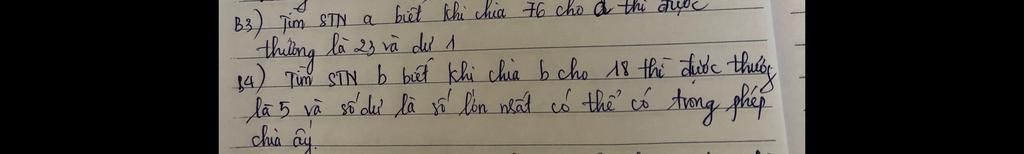 B3) Tìm STN a biết khi chia 76 cho a thì được
thương là 23 và dư 1
B4) Tìm STN b biết khi chia b cho 18 thì được thương
là 5 và số dư là số lớn nhất có thể có trong phép
chia ấy.